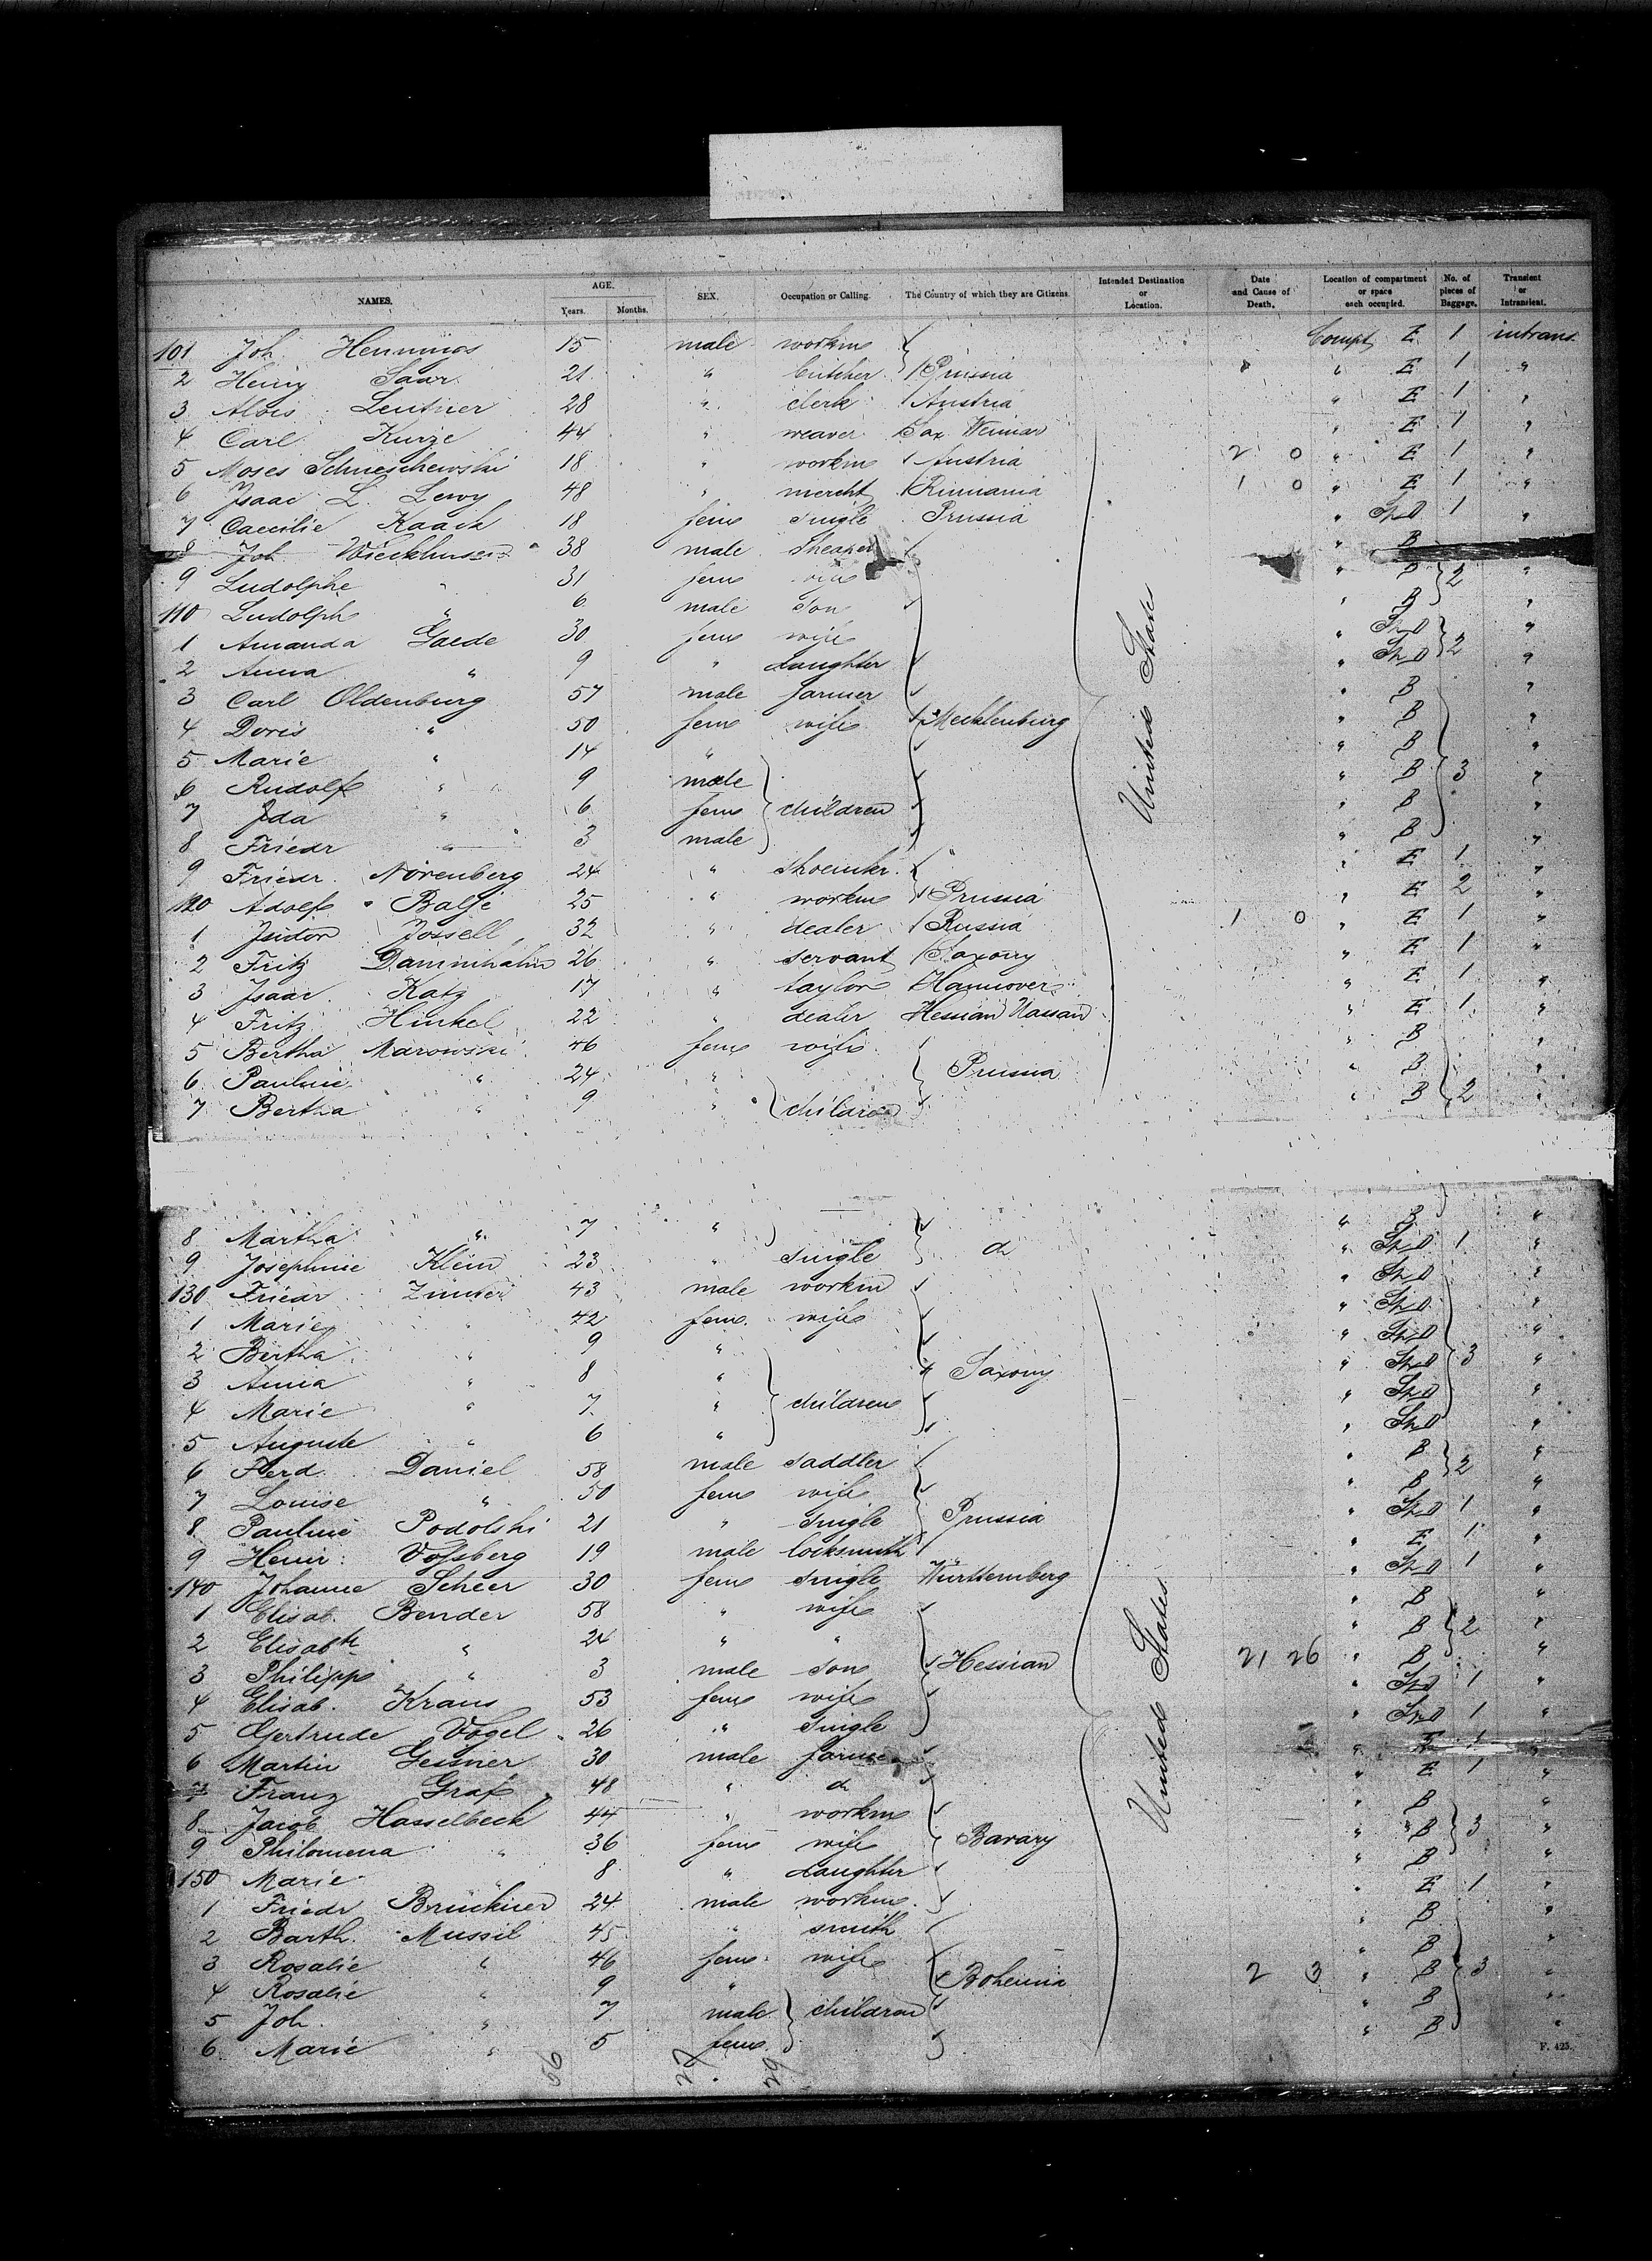 NAMES. AGE. Years. Months. SEX. Occupation or Calling. The Country of which they are Citizens. Intended Destination or Location. Date and Cause of Death. Location of compartment or space each occupied. No. of pieces of Baggage. Transient or Intransient.
101 Joh. Hennings 15 male workm Compt E 1 intrans
2 Heinr Saar 21 " butcher Prussia " E 1 "
3 Alois Leutner 28 " clerk Austria " E 1 "
4 Carl Kurze 44 " weaver Sax Weimar " E 1 "
5 Moses Schmeschewski 18 " workm Austria 2 0 " E 1 "
6 Isaac L. Lewy 48 " mercht Rumania 1 0 " E 1 "
7 Caecilie Kaack 18 fem single Prussia " StD 1 "
8 Joh Wieckhusen 38 male " B
9 Ludolphe " 31 fem wife " B 2 "
110 Ludolph " 6 male son " B "
1 Amanda Gaede 30 fem wife " StD "
2 Anna " 9 " daughter " StD 2 "
3 Carl Oldenburg 57 male farmer " B "
4 Doris " 50 fem wife Mecklenburg " B "
5 Marie " 14 " " B "
6 Rudolf " 9 male " B 3 "
7 Ida " 6 fem children " B "
8 Friedr " 3 male " B "
9 Friedr. Nörenberg 24 " shoemkr. " E 1 "
120 Adolf Balje 25 " workm Prussia " E 2 "
1 Isidor Jossell 32 " dealer Russia 1 0 " E 1 "
2 Fritz Dammhahn 26 " servant Saxony " E 1 "
3 Isaac Katz 17 " taylor Hannover " E 1 "
4 Fritz Hinkel 22 " dealer Hessian Nassau " E 1 "
5 Bertha Marowski 46 fem wife " B "
6 Pauline " 24 " Prussia " B "
7 Bertha " 9 " children " B 2 "
United State
8 Martha " 7 " " B "
9 Josephine Klein 23 " single do " StD 1 "
130 Friedr Zimmer 43 male workm " StD "
1 Marie " 42 fem. wife " StD "
2 Bertha " 9 " " StD "
3 Anna " 8 " Saxony " StD 3 "
4 Marie " 7 " children " StD "
5 Auguste " 6 " " StD "
6 Ferd. Daniel 58 male saddler " B 2 "
7 Louise " 50 fem wife " B "
8 Pauline Podolski 21 " single Prussia " StD 1 "
9 Heinr: Voßberg 19 male locksmith " E 1 "
140 Johanne Scheer 30 fem single Württemberg " StD 1 "
1 Elisab. Bender 58 " wife " B "
2 Elisabth " 24 " " " B 2 "
3 Philipp " 3 male son Hessian 21 26 " B "
4 Elisab. Kraus 53 fem wife " StD 1 "
5 Gertrude Vogel 26 " single " StD 1 "
6 Martin Gessner 30 male farmer " E 1
7 Franz Graf 48 " do " E 1 "
8 Jacob Hasselbeck 44 " workm " B "
9 Philomena " 36 fem wife Bavary " B 3 "
150 Marie " 8 " daughter " B "
1 Friedr Brückner 24 male workm. " E 1 "
2 Barth. Mussil 45 " smith " B "
3 Rosalie " 46 fem wife " B "
4 Rosalie " 9 " Bohemia 2 3 " B 3 "
5 Joh. " 7 male children " B "
6 Marie " 5 fem. " B "
United States
F. 425.
56 27. 29